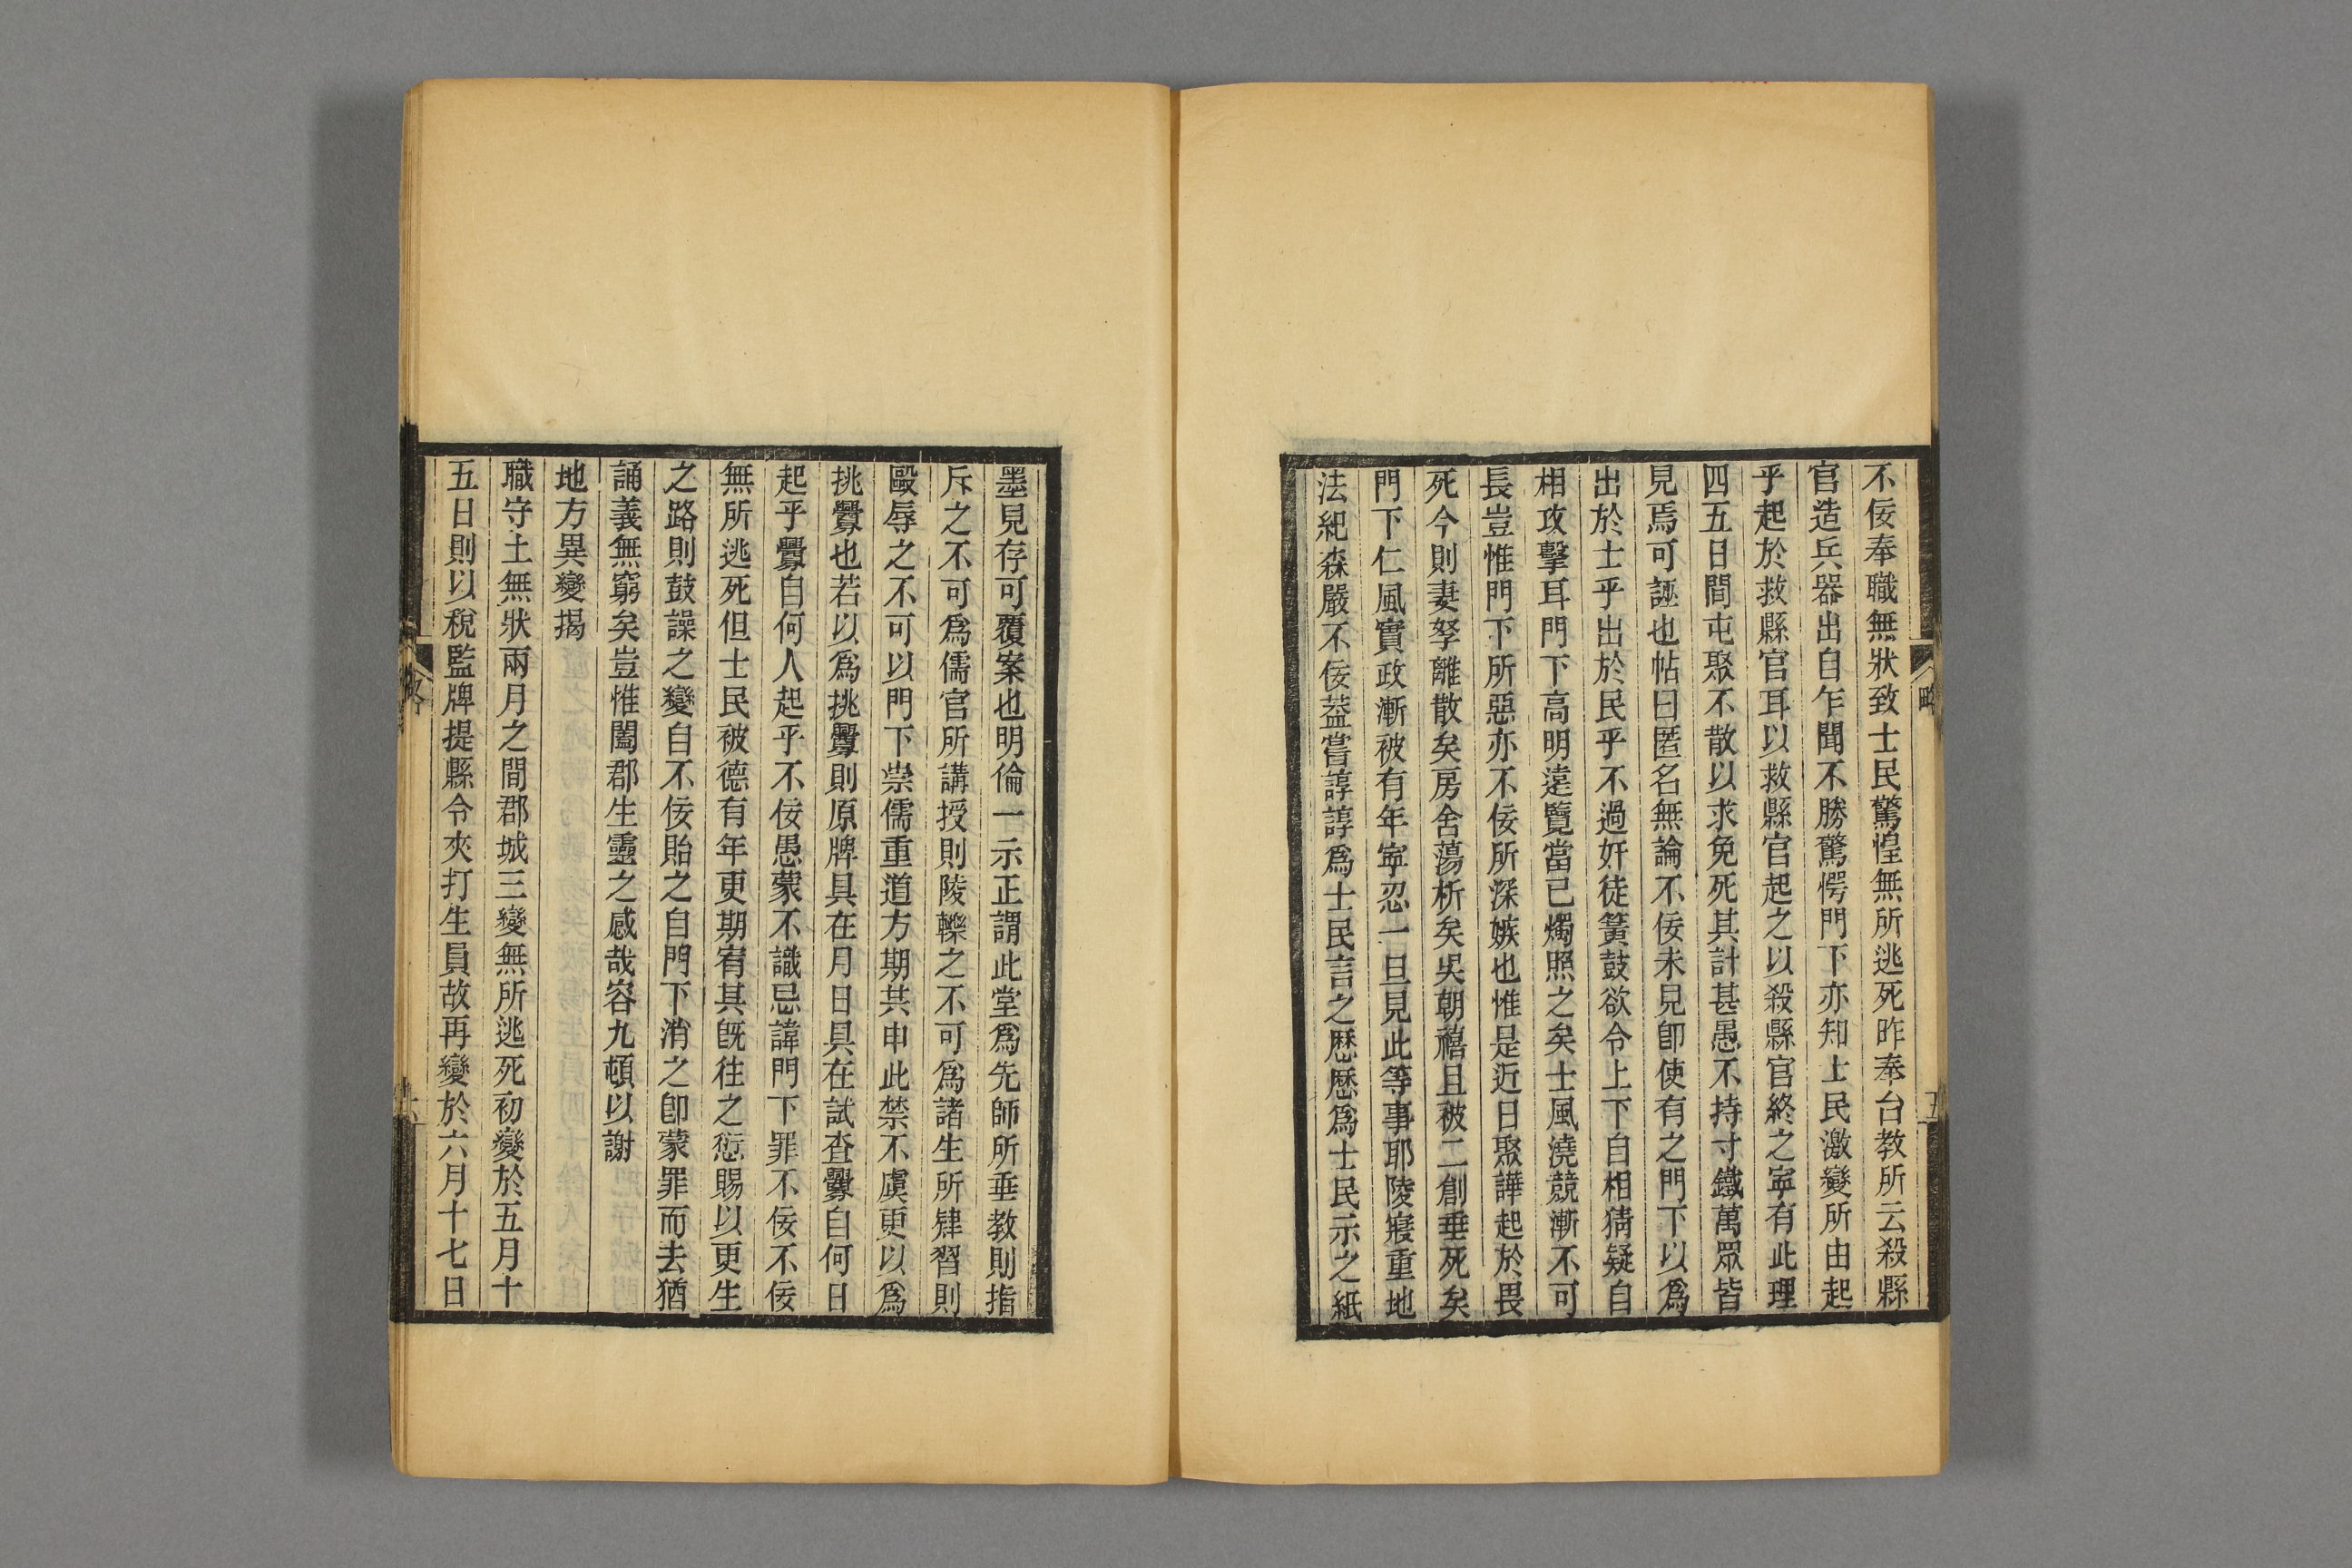 不佞奉職無狀致士民驚惶無所逃死昨奉台教所云殺縣
官造兵器出自乍聞不勝驚愕門下亦知士民激變所由起
乎起於救縣官耳以救縣官起之以殺縣官終之寧有此理
四五日間屯聚不散以求免死其計甚愚不持寸鐵萬眾皆
見焉可誣也帖曰匿名無論不佞未見卽使有之門下以爲
出於士乎出於民乎不過奸徒簧鼓欲令上下自相猜疑自
相攻擊耳門下高明遠覽當已燭照之矣士風澆競漸不可
長豈惟門下所惡亦不佞所深嫉也惟是近日聚譁起於畏
死今則妻孥離散矣房舍蕩析矣吳朝禧且被二創垂死矣
門下仁風實政漸被有年寧忍一旦見此等事耶陵寢重地
法紀森嚴不佞葢嘗諄諄爲士民言之歷歷爲士民示之紙
墨見存可覆案也明倫一示正謂此堂爲先師所垂教則指
斥之不可爲儒官所講授則陵轢之不可爲諸生所肄習則
毆辱之不可以門下崇儒重道方期共申此禁不虞更以爲
挑釁也若以爲挑釁則原牌具在月日具在試查釁自何日
起乎釁自何人起乎不佞愚蒙不識忌諱門下罪不佞不佞
無所逃死但士民被德有年更期宥其旣往之愆賜以更生
之路則鼓譟之變自不佞貽之自門下消之卽蒙罪而去猶
誦義無窮矣豈惟闔郡生靈之感哉容九頓以謝
地方異變揭
職守土無狀兩月之間郡城三變無所逃死初變於五月十
五日則以稅監牌提縣令夾打生員故再變於六月十七日
略
五
略
六